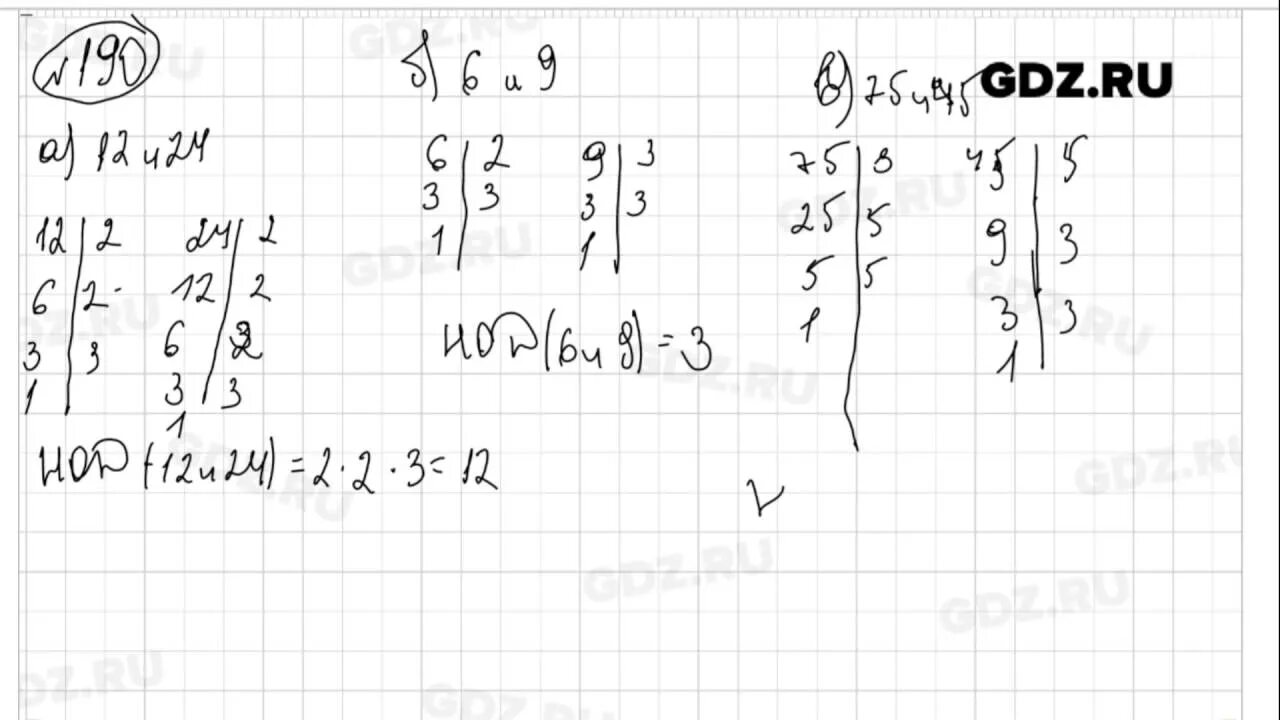 №190
а) 12 и 24
12 | 2
6 | 2
3 | 3
1 |
24 | 2
12 | 2
6 | 2
3 | 3
1
НОД (12 и 24) = 2·2·3 = 12
б) 6 и 9
6 | 2
3 | 3
1 |
9 | 3
3 | 3
1 |
НОД (6 и 9) = 3
в) 75 и 45
75 | 3
25 | 5
5 | 5
1 |
45 | 5
9 | 3
3 | 3
1 |
GDZ.RU
GDZ.RU
GDZ.RU
GDZ.RU
GDZ.RU
GDZ.RU
GDZ.RU
GDZ.RU
GDZ.RU
GDZ.RU
GDZ.RU
GDZ.RU
GDZ.RU
GDZ.RU